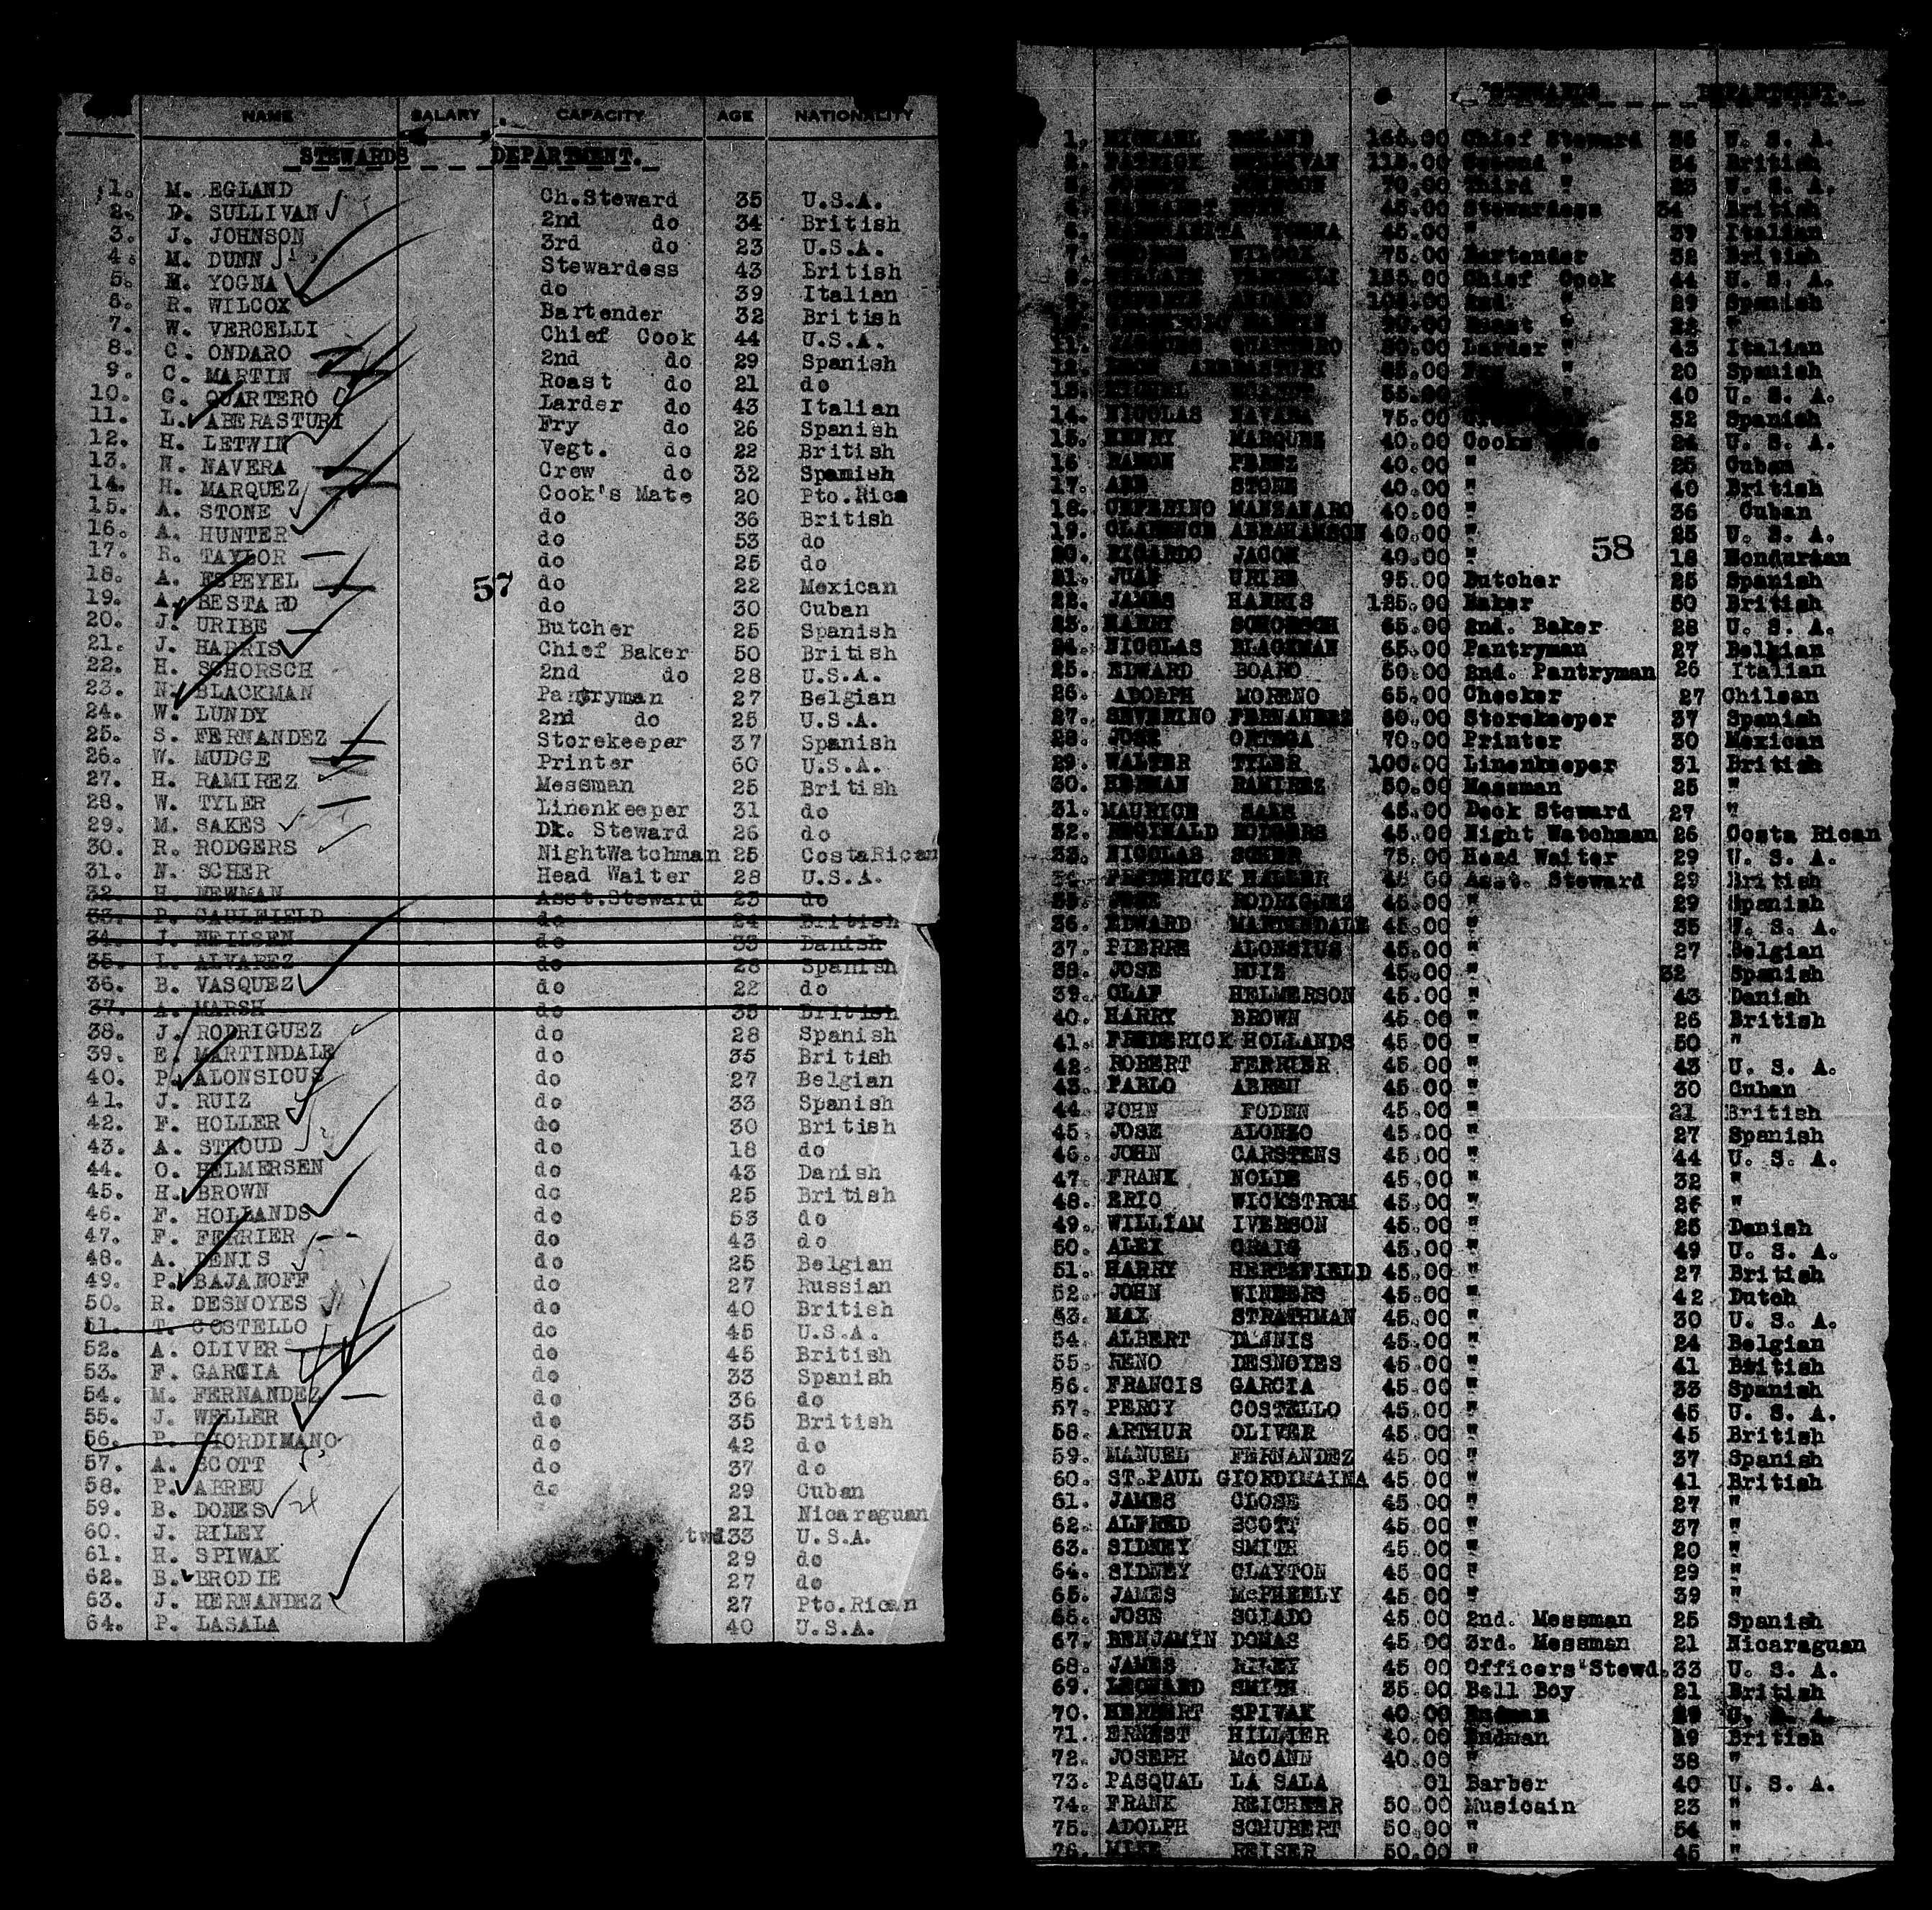 NAME SALARY CAPACITY AGE NATIONALITY
STEWARDS DEPARTMENT.
1. M. EGLAND Ch.Steward 35 U.S.A.
2. D. SULLIVAN 2nd do 34 British
3. J. JOHNSON 3rd do 23 U.S.A.
4. M. DUNN Stewardess 43 British
5. M. YOGNA do 39 Italian
6. R. WILCOX Bartender 32 British
7. W. VERCELLI Chief Cook 44 U.S.A.
8. C. ONDARO 2nd do 29 Spanish
9. C. MARTIN Roast do 21 do
10. G. QUARTERO Larder do 43 Italian
11. L. ABERASTURI Fry do 26 Spanish
12. H. LETWIN Vegt. do 22 British
13. N. NAVERA Crew do 32 Spanish
14. H. MARQUEZ Cook's Mate 20 Pto.Rica
15. A. STONE do 36 British
16. A. HUNTER do 53 do
17. R. TAYLOR do 25 do
18. A. ESPEYEL do 22 Mexican
19. A. BESTARD do 30 Cuban
57
20. J. URIBE Butcher 25 Spanish
21. J. HARRIS Chief Baker 50 British
22. H. SCHORSCH 2nd do 28 U.S.A.
23. N. BLACKMAN Pantryman 27 Belgian
24. W. LUNDY 2nd do 25 U.S.A.
25. S. FERNANDEZ Storekeeper 37 Spanish
26. W. MUDGE Printer 60 U.S.A.
27. H. RAMIREZ Messman 25 British
28. W. TYLER Linenkeeper 31 do
29. M. SAKES Dk. Steward 26 do
30. R. RODGERS NightWatchman 25 CostaRican
31. N. SCHER Head Waiter 28 U.S.A.
32. H. NEWMAN Asst.Steward 23 do
33. P. CAULFIELD do 24 British
34. J. NEILSEN do 33 Danish
35. L. ALVAREZ do 28 Spanish
36. B. VASQUEZ do 22 do
37. A. MARSH do 35 British
38. J. RODRIGUEZ do 28 Spanish
39. E. MARTINDALE do 35 British
40. P. ALONSIOUS do 27 Belgian
41. J. RUIZ do 33 Spanish
42. F. HOLLER do 30 British
43. A. STROUD do 18 do
44. O. HELMERSEN do 43 Danish
45. H. BROWN do 25 British
46. F. HOLLANDS do 53 do
47. F. FERRIER do 43 do
48. A. DENIS do 25 Belgian
49. P. BAJANOFF do 27 Russian
50. R. DESNOYES do 40 British
51. T. COSTELLO do 45 U.S.A.
52. A. OLIVER do 45 British
53. F. GARCIA do 33 Spanish
54. M. FERNANDEZ do 36 do
55. J. WELLER do 35 British
56. P. GIORDIMANO do 42 do
57. A. SCOTT do 37 do
58. P. ABREU do 29 Cuban
59. B. DONES 21 Nicaraguan
60. J. RILEY .twd 33 U.S.A.
61. H. SPIWAK 29 do
62. B. BRODIE 27 do
63. J. HERNANDEZ 27 Pto.Rican
64. P. LASALA 40 U.S.A.
STEWARDS DEPARTMENT.
1. MICHAEL Chief Steward 35 U. S. A.
2. PATRICK SULLIVAN Second " 34 British
3. JOSEPH JOHNSON 70.00 Third " 23 U. S. A.
4. 45.00 Stewardess British
45.00 " 39 Italian
7. WILCOX 75.00 Bartender 32 British
8. Chief Cook 44 U. S. A.
9. 2nd. " 29 Spanish
Roast " "
11. Larder " 43 Italian
12. " 20 Spanish
13. " 40 U. S. A.
14. NICOLAS NAVARA 75.00 32 Spanish
15. HENRY MARQUEZ 40.00 Cooks U. S. A.
16 RAMON PEREZ 40.00 " 25 Cuban
17. ABE STONE 40.00 " 40 British
18. CEFERINO MANZANARO 40.00 " 36 Cuban
19. CLARENCE ABRAHAMSON 40.00 " 25 U. S. A.
58
20. RICARDO JACOM 40.00 " 18 Hondurian
21. JUAN URIBE 95.00 Butcher 25 Spanish
22. JAMES HARRIS 125.00 Baker 50 British
23. HARRY SCHORSCH 65.00 2nd. Baker 28 U. S. A.
24. NICOLAS BLACKMAN 65.00 Pantryman 27 Belgian
25. EDWARD BOARO 50.00 2nd. Pantryman 26 Italian
26. ADOLPH MORENO 65.00 Checker 27 Chilean
27. SEVERINO FERNANDEZ 60.00 Storekeeper 37 Spanish
28. JOSE ORTEGA 70.00 Printer 30 Mexican
29. WALTER TYLER 100.00 Linenkeeper 31 British
30. HERMAN RAMIREZ 50.00 Messman 25 "
31. MAURICE SAKS 45.00 Deck Steward 27 "
32. REGINALD RODGERS 45.00 Night Watchman 26 Costa Rican
33. NICOLAS SCHER 75.00 Head Waiter 29 U. S. A.
34. FREDERICK HALLER 45 00 Asst. Steward 29 British
35. JOSE RODRIGUEZ 45.00 " 29 Spanish
36. EDWARD MARTINDALE 45.00 " 35 U. S. A.
37. PIERRE ALONSIUS 45.00 " 27 Belgian
38. JOSE RUIZ 45.00 " 32 Spanish
39. OLAF HELMERSON 45.00 " 43 Danish
40. HARRY BROWN 45.00 " 26 British
41. FREDERICK HOLLANDS 45.00 " 50 "
42. ROBERT FERRIER 45.00 " 43 U. S. A.
43. PABLO ABREU 45.00 " 30 Cuban
44. JOHN FODEN 45.00 " 21 British
45. JOSE ALONZO 45.00 " 27 Spanish
46. JOHN CARSTENS 45.00 " 44 U. S. A.
47. FRANK NOLDE 45.00 " 32 "
48. ERIC WICKSTROM 45.00 " 26 "
49. WILLIAM IVERSON 45.00 " 25 Danish
50. ALEX CRAIG 45.00 " 49 U. S. A.
51. HARRY HERTZFIELD 45.00 " 27 British
52. JOHN WINDERS 45.00 " 42 Dutch
53. MAX STRATHMAN 45.00 " 30 U. S. A.
54. ALBERT DANNIS 45.00 " 24 Belgian
55. RENO DESNOYES 45.00 " 41 British
56. FRANCIS GARCIA 45.00 " 33 Spanish
57. PERCY COSTELLO 45.00 " 45 U. S. A.
58. ARTHUR OLIVER 45.00 " 45 British
59. MANUEL FERNANDEZ 45.00 " 37 Spanish
60. ST.PAUL GIORDIMAINA 45.00 " 41 British
61. JAMES CLOSE 45.00 " 27 "
62. ALFRED SCOTT 45.00 " 37 "
63. SIDNEY SMITH 45.00 " 20 "
64. SIDNEY CLAYTON 45.00 " 29 "
65. JAMES McPHEELY 45.00 " 39 "
66. JOSE SCIADO 45.00 2nd. Messman 25 Spanish
67. BENJAMIN DOMAS 45.00 3rd. Messman 21 Nicaraguan
68. JAMES RILEY 45 00 Officers'Stewd. 33 U. S. A.
69. LEONARD SMITH 35.00 Bell Boy 21 British
70. HERBERT SPIWAK 40.00
71. ERNEST HILLIER 40.00 Endman 29 British
72. JOSEPH McCANN 40.00 " 38 "
73. PASQUAL LA SALA 01 Barber 40 U. S. A.
74. FRANK REICHEER 50.00 Musicain 23 "
75. ADOLPH SCHUBERT 50.00 " 54 "
76. MIKE REISER 50.00 " 45 "